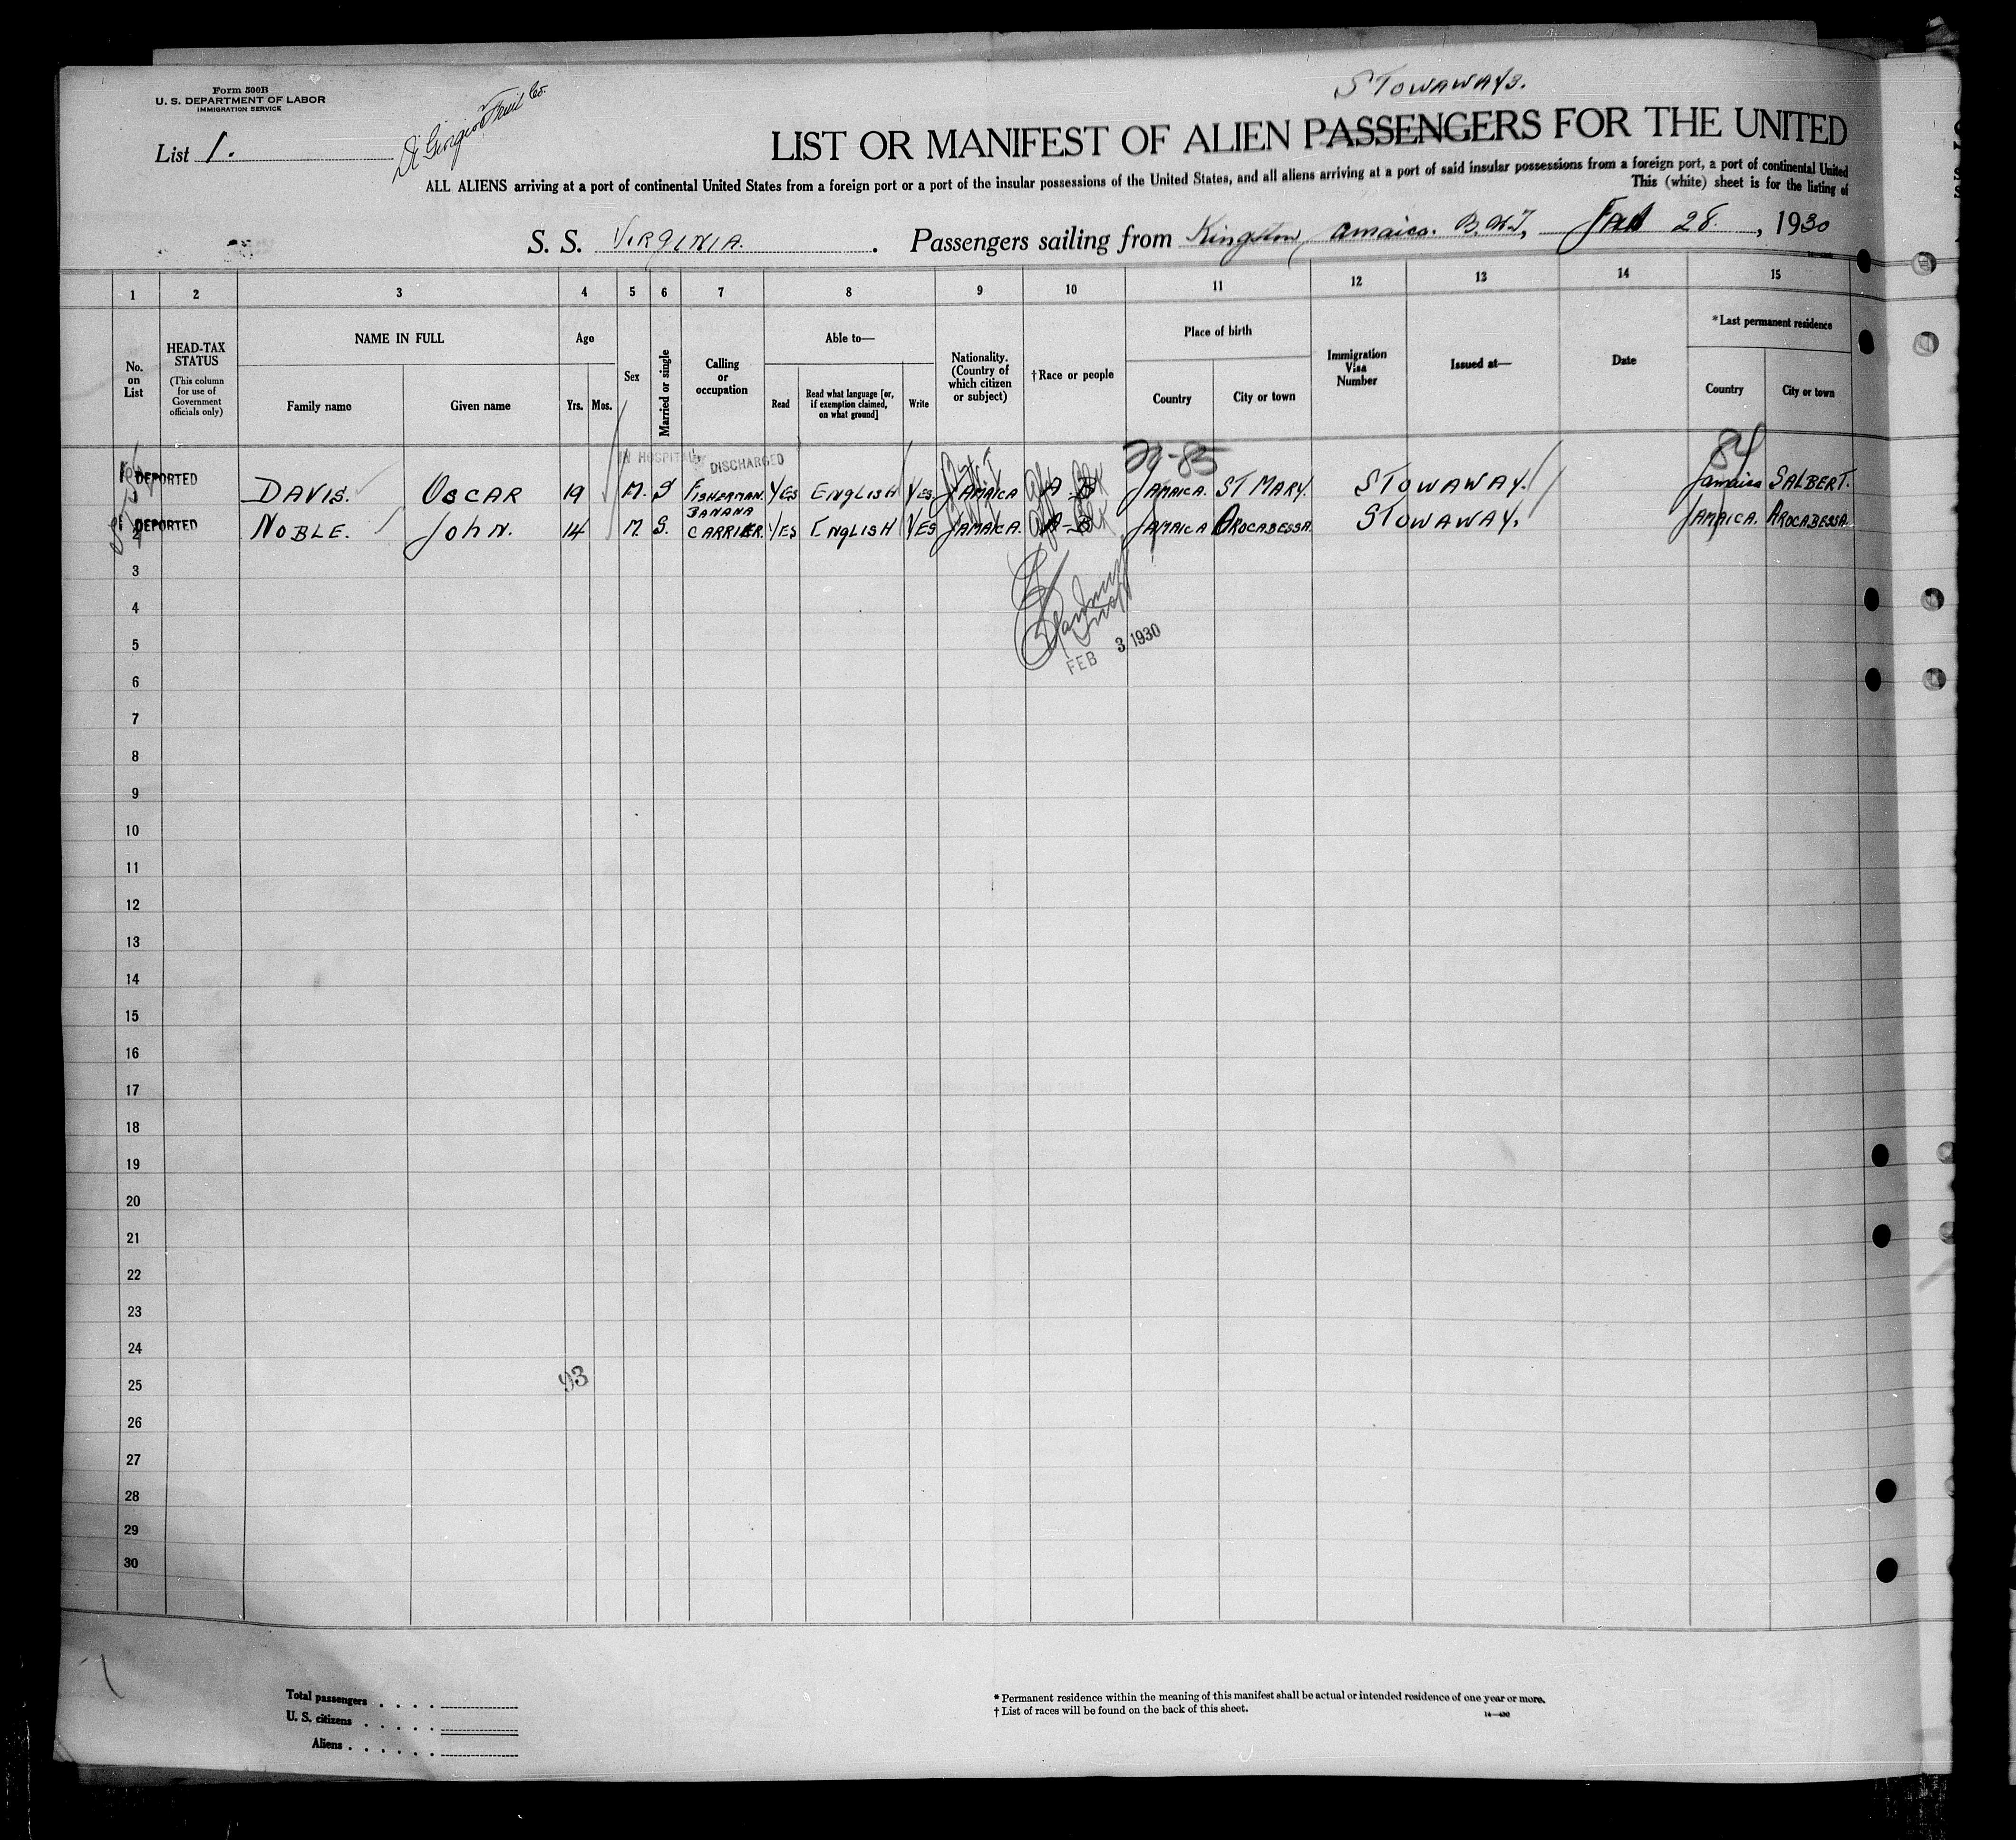 STOWAWAYS.
Form 500B
U. S. DEPARTMENT OF LABOR
IMMIGRATION SERVICE
Di Giorgio Fruit Co.
List 1.
LIST OR MANIFEST OF ALIEN PASSENGERS FOR THE UNITED
ALL ALIENS arriving at a port of continental United States from a foreign port or a port of the insular possessions of the United States, and all aliens arriving at a port of said insular possessions from a foreign port, a port of continental United
This (white) sheet is for the listing of
S. S. VIRGINIA. Passengers sailing from Kingston, Jamaica. B.W.I, 28, 1930
1 2 3 4 5 6 7 8 9 10 11 12 13 14 15
No. on List
HEAD-TAX STATUS
(This column for use of Government officials only)
NAME IN FULL
Family name
Given name
Age
Yrs. Mos.
Sex
Married or single
Calling or occupation
Able to—
Read
Read what language [or, if exemption claimed, on what ground]
Write
Nationality. (Country of which citizen or subject)
†Race or people
Place of birth
Country
City or town
Immigration Visa Number
Issued at—
Date
*Last permanent residence
Country
City or town
IN HOSPITAL DISCHARGED
29-85
84
1 DEPORTED DAVIS. OSCAR 19 M. S FISHERMAN. YES ENGLISH YES JAMAICA A-B JAMAICA. ST MARY. STOWAWAY. Jamaica SALBERT.
2 DEPORTED NOBLE. JOHN. 14 M. S. BANANA CARRIER. YES ENGLISH YES JAMAICA. A-B JAMAICA OROCABESSA. STOWAWAY. JAMAICA. AROCABESSA.
3
4
5
FEB 3 1930
6
7
8
9
10
11
12
13
14
15
16
17
18
19
20
21
22
23
24
25 93
26
27
28
29
30
Total passengers . . . .
U. S. citizens . . . . .
Aliens . . . . . .
* Permanent residence within the meaning of this manifest shall be actual or intended residence of one year or more.
† List of races will be found on the back of this sheet.